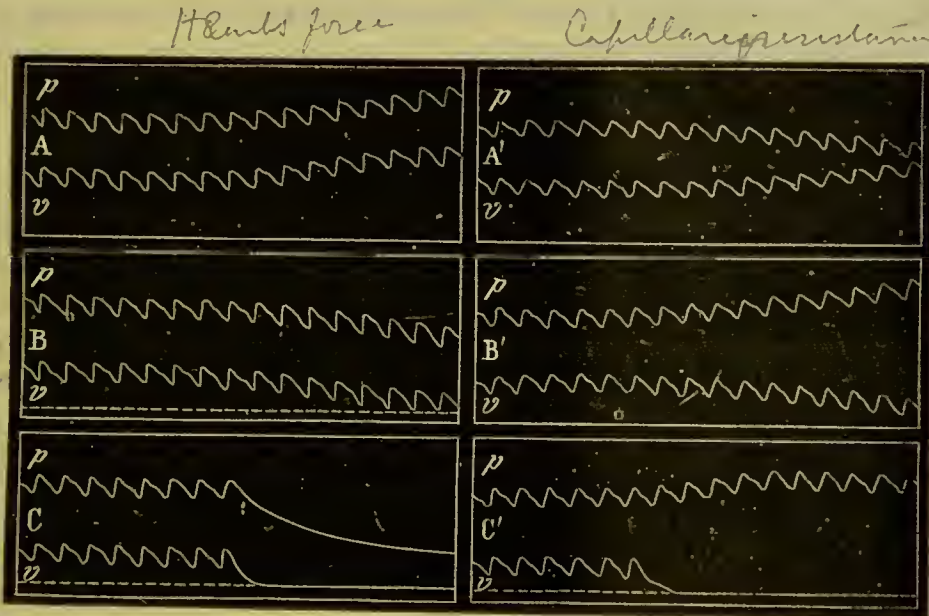 Hearts force
Capillary resistance
p
A
v
p
A'
v
p
B
v
p
B'
v
p
C
v
p
C'
v